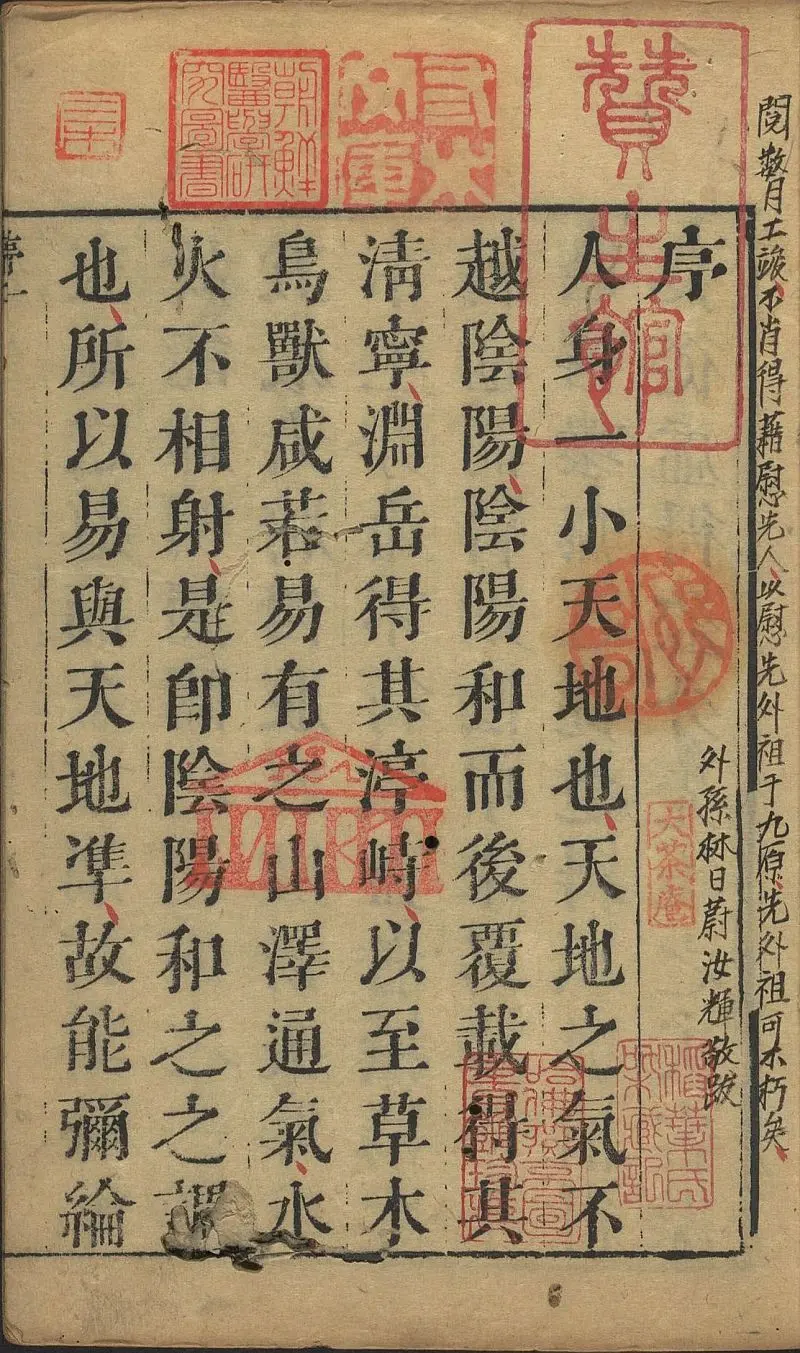 閱數月工竣不肖得藉慰先人以慰先外祖于九原先外祖可不朽矣
外孫林日蔚汝輝敬跋
序
人身一小天地也天地之氣不
越陰陽陰陽和而後覆載得其
清寧淵岳得其渟峙以至草木
鳥獸咸若易有之山澤通氣水
火不相射是卽陰陽和之之謂
也所以易與天地準故能彌綸
贊生館
朝鮮
醫學硏
究圖書
三木
大茶庵